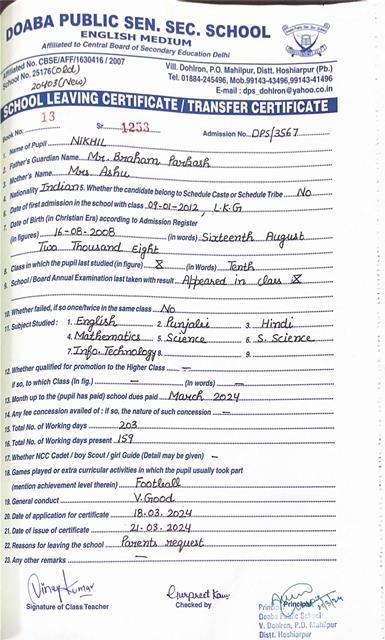 DOABA PUBLIC SEN. SEC. SCHOOL
ENGLISH MEDIUM
Affiliated to Central Board of Secondary Education Delhi
Affiliated No. CBSE/AFF/1630416 / 2007
School No. 25176(Old)
20403(New)
Vill. Dohlron, P.O. Mahilpur, Distt. Hoshiarpur (Pb.)
Tel. 01884-245496, Mob.99143-43496,99143-41496
E-mail : dps_dohlron@yahoo.co.in
SCHOOL LEAVING CERTIFICATE / TRANSFER CERTIFICATE
Book No. 13 Sr. 1253 Admission No. DPS/3567
1. Name of Pupil NIKHIL
2. Father's Guardian Name Mr. Braham Parkash
3. Mother's Name Mrs. Ashu
4. Nationality Indian 5. Whether the candidate belong to Schedule Caste or Schedule Tribe No
6. Date of first admission in the school with class 09-01-2012, L.K.G
7. Date of Birth (in Christian Era) according to Admission Register
(in figures) 16-08-2008 (in words) Sixteenth August
Two Thousand Eight
8. Class in which the pupil last studied (in figure) X (in Words) Tenth
9. School / Board Annual Examination last taken with result Appeared in class X
10. Whether failed, if so once/twice in the same class No
11. Subject Studied : 1. English 2. Punjabi 3. Hindi
4. Mathematics 5. Science 6. S. Science
7. Info. Technology 8. 9.
12. Whether qualified for promotion to the Higher Class —
if so, to which Class (In fig.) — (In words) —
13. Month up to the (pupil has paid) school dues paid March 2024
14. Any fee concession availed of : if so, the nature of such concession —
15. Total No. of Working days 203
16. Total No. of Working days present 159
17. Whether NCC Cadet / boy Scout / girl Guide (Detail may be given) —
18. Games played or extra curricular activities in which the pupil usually took part
(mention achievement level therein) Football
19. General conduct V. Good
20. Date of application for certificate 18-03-2024
21. Date of issue of certificate 21-03-2024
22. Reasons for leaving the school Parents request
23. Any other remarks —
Vinay Kumar Gurpreet Kaur
Signature of Class Teacher Checked by Principal
Principal
Doaba Public School
V. Dohlron, P.O. Mahilpur
Distt. Hoshiarpur